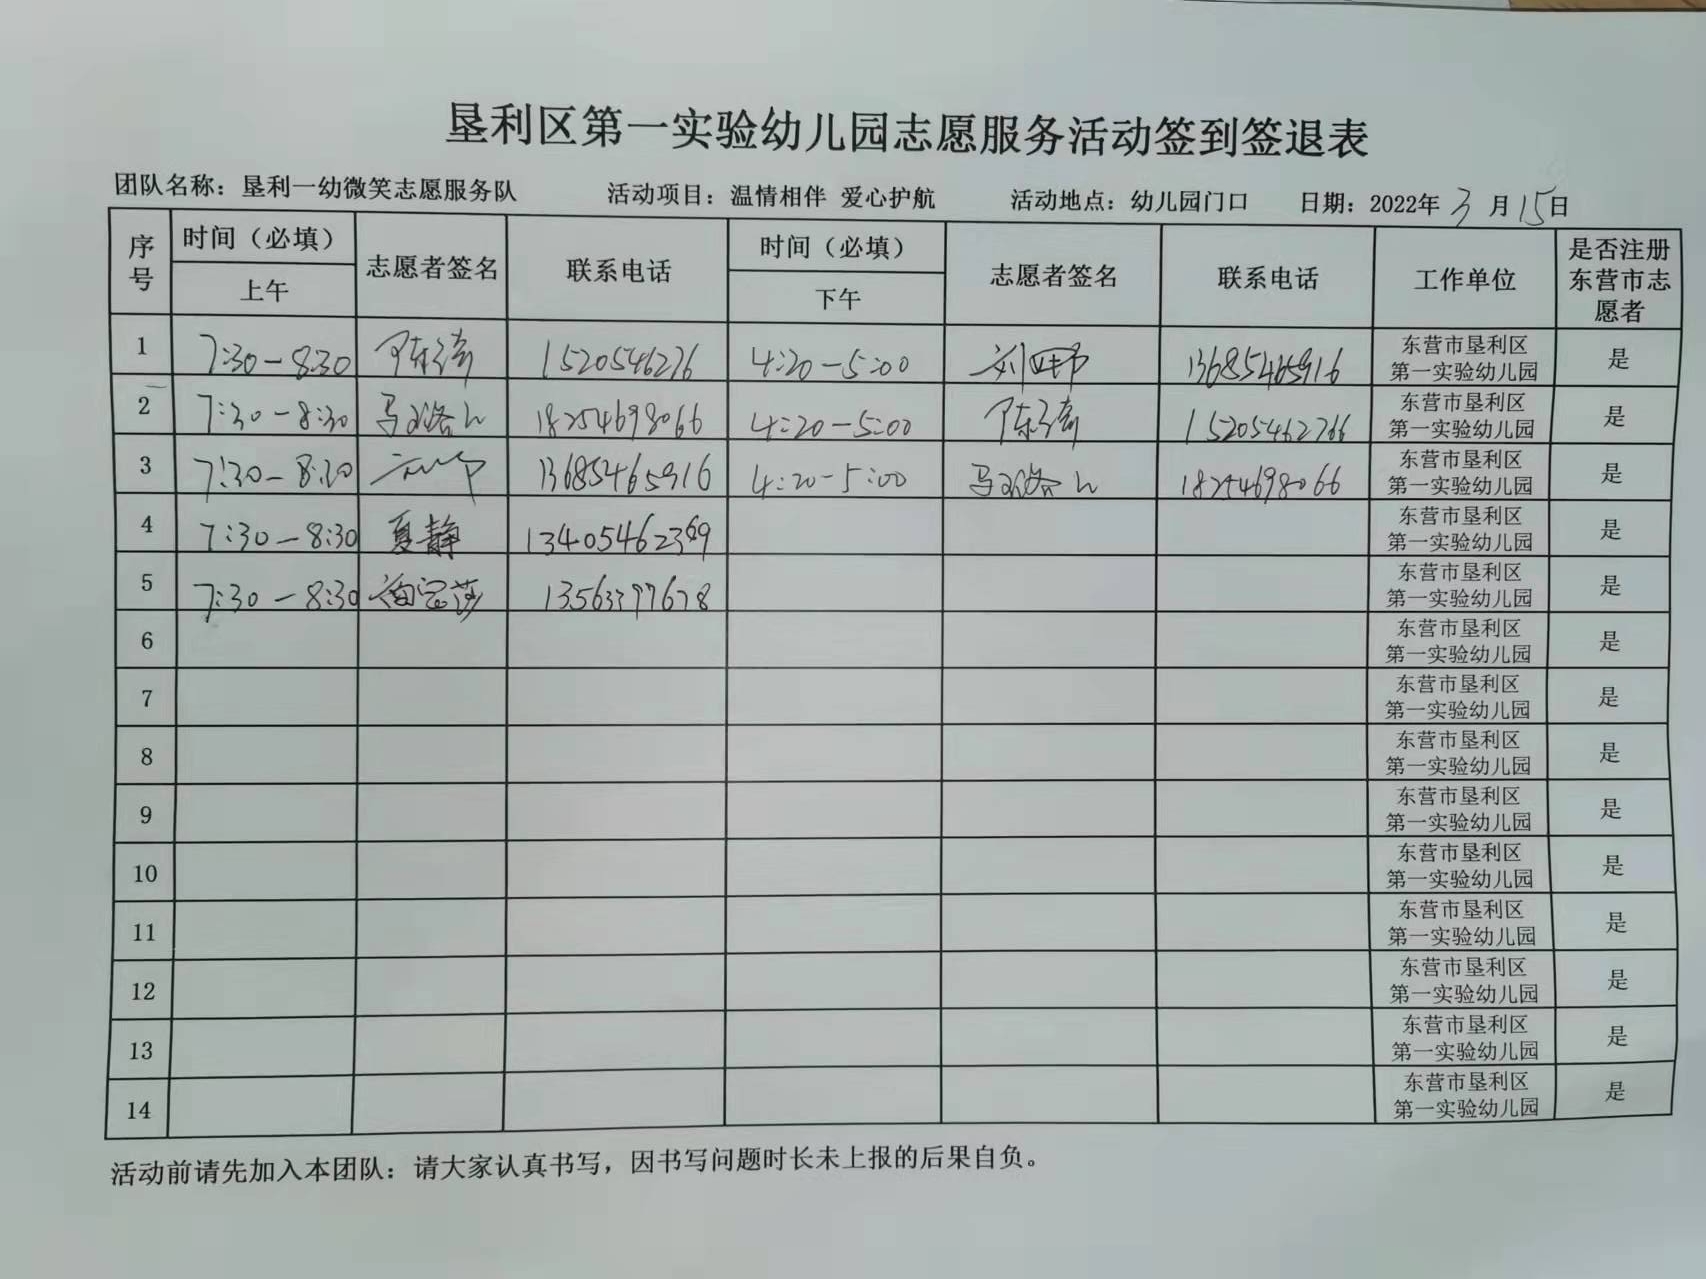 垦利区第一实验幼儿园志愿服务活动签到签退表
团队名称：垦利一幼微笑志愿服务队 活动项目：温情相伴 爱心护航 活动地点：幼儿园门口 日期：2022年3月15日
序号 时间（必填） 上午 志愿者签名 联系电话 时间（必填） 下午 志愿者签名 联系电话 工作单位 是否注册东营市志愿者
1 7:30-8:30 1520546276 4:20-5:00 13685465916 东营市垦利区第一实验幼儿园 是
2 7:30-8:30 18254698066 4:20-5:00 15205462766 东营市垦利区第一实验幼儿园 是
3 7:30-8:30 13685465916 4:20-5:00 18254698066 东营市垦利区第一实验幼儿园 是
4 7:30-8:30 夏静 13405462369 东营市垦利区第一实验幼儿园 是
5 7:30-8:30 13563397678 东营市垦利区第一实验幼儿园 是
6 东营市垦利区第一实验幼儿园 是
7 东营市垦利区第一实验幼儿园 是
8 东营市垦利区第一实验幼儿园 是
9 东营市垦利区第一实验幼儿园 是
10 东营市垦利区第一实验幼儿园 是
11 东营市垦利区第一实验幼儿园 是
12 东营市垦利区第一实验幼儿园 是
13 东营市垦利区第一实验幼儿园 是
14 东营市垦利区第一实验幼儿园 是
活动前请先加入本团队：请大家认真书写，因书写问题时长未上报的后果自负。